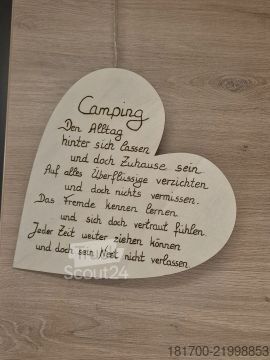 Camping
Den Alltag
hinter sich lassen
und doch Zuhause sein
Auf alles Überflüssige verzichten
und doch nichts vermissen.
Das Fremde kennen lernen
und sich doch vertraut fühlen
Jeder Zeit weiter ziehen können
und doch sein Nest nicht verlassen
Scout24
181700-21998853